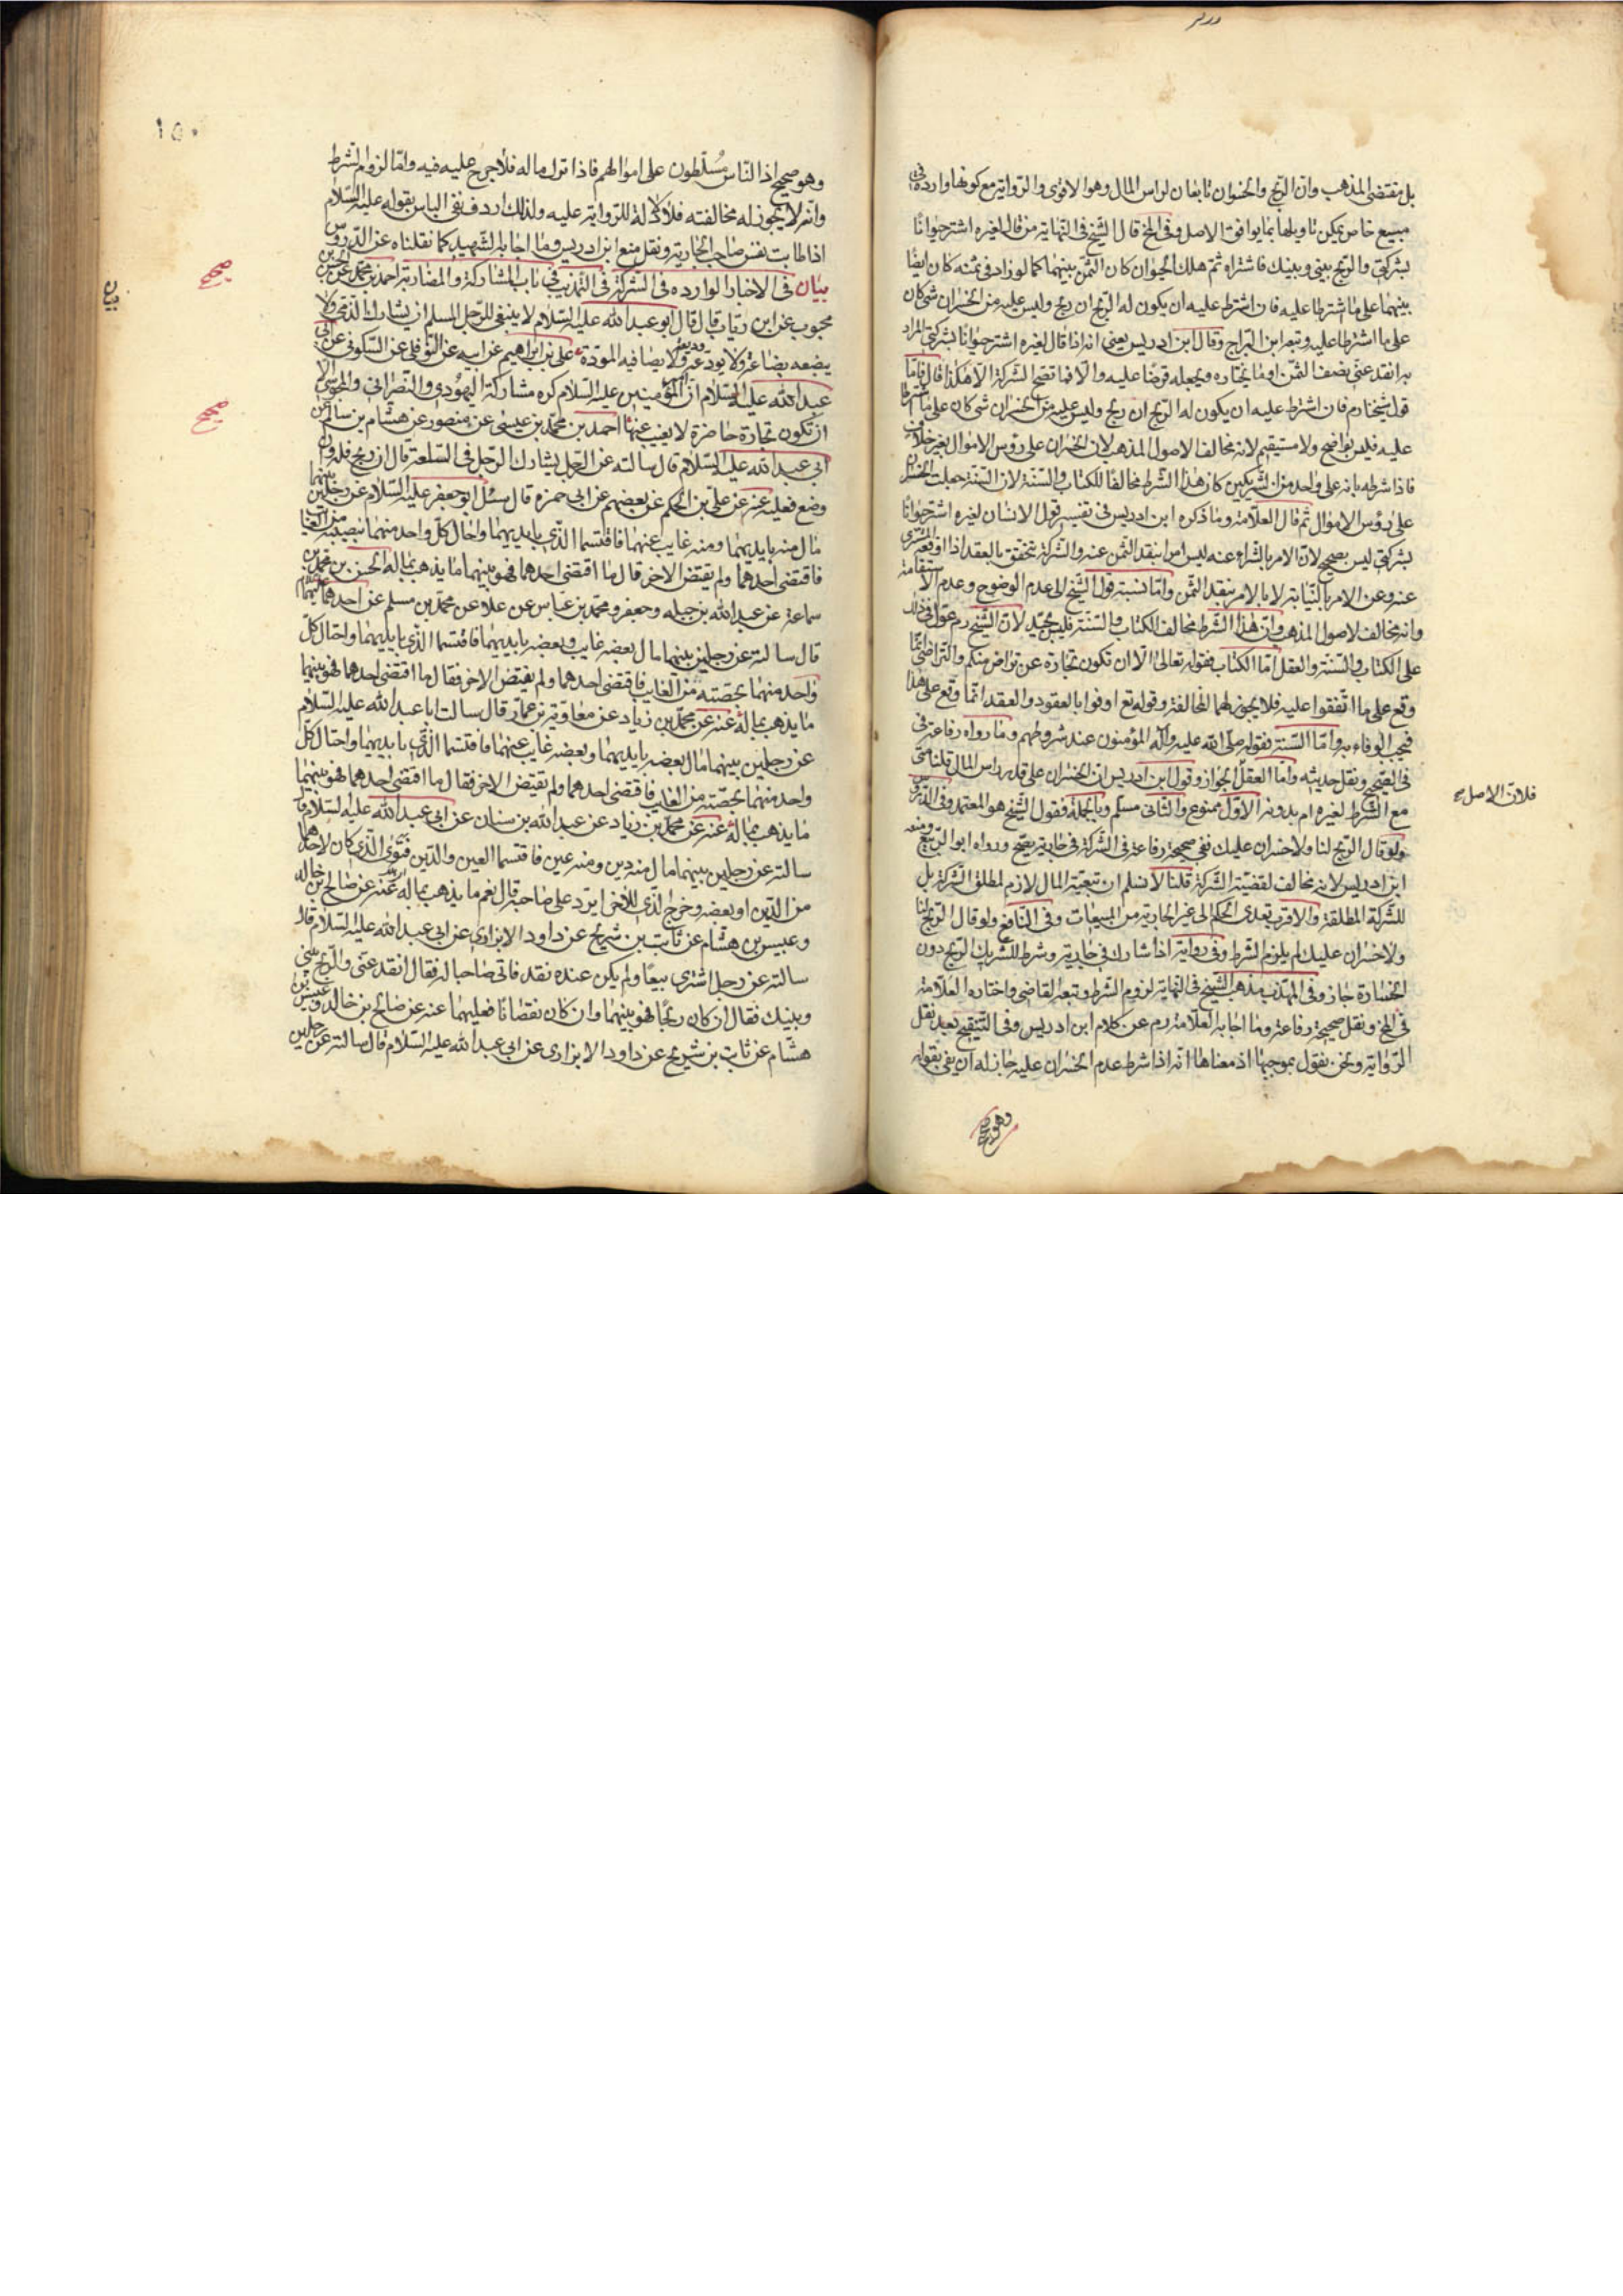 بل مقتضى المذهب وان الربح والخسران تابعان لراس المال وهو الاقوى والرواية مع كونها وارده فى
مبيع خاص يمكن تاويلها بما يوافق الاصل وفى المخ قال الشيخ فى النهاية من قال لغيره اشتر حيوانا
بشركتى والربح بينى وبينك فاشتراه ثم هلك الحيوان كان الثمن بينهما كما لو زاد فى ثمنه كان ايضا
بينهما على ما اشترطا عليه فان اشترط عليه ان يكون له الربح ان ربح وليس عليه من الخسران شى كان
على ما اشترطا عليه وتبعه ابن البراج وقال ابن ادريس يعنى انه اذا قال لغيره اشتر حيوانا بشركتى المراد
به انقد عنى نصف الثمن او ما يختاره ويجعله قرضا عليه والا فما تصح الشركة الا هكذا قال فاما
قول شيخنا رم فان اشترط عليه ان يكون له الربح ان ربح وليس عليه من الخسران شى كان على ما اشترطا
عليه فليس بواضح ولا مستقيم لانه مخالف لاصول المذهب لان الخسران على رؤس الاموال بغير خلاف
فاذا شرطه بانه على واحد من الشريكين كان هذا الشرط مخالفا للكتاب والسنة لان السنة جعلت الخسران
على رؤس الاموال ثم قال العلامة وما ذكره ابن ادريس فى تفسير قول الانسان لغيره اشتر حيوانا
بشركتى ليس بصحيح لان الامر بالشراء عنه ليس امرا بنقد الثمن عنه والشركة تتحقق بالعقد اذا اوقعه المشترى
عنه وعن الامر بالنيابة لا بالامر بنقد الثمن واما نسبة قول الشيخ الى عدم الوضوح وعدم الاستقامة
وانه مخالف لاصول المذهب وان هذا الشرط مخالف الكتاب والسنة فليس بجيد لان الشيخ رم عول فى ذلك
على الكتاب والسنة والعقل اما الكتاب فقوله تعالى الا ان تكون تجارة عن تراض منكم والتراضى انما
وقع على ما اتفقوا عليه فلا يجوز لهما المخالفة وقوله تع اوفوا بالعقود والعقد انما وقع على هذا
فيجب الوفاء به واما السنة فقوله صلى الله عليه وآله المؤمنون عند شروطهم وما رواه رفاعة فى
فى الصحيح ونقل حديثه واما العقل فلان الاصل صح الجواز وقول ابن ادريس ان الخسران على قدر راس المال قلنا متى
مع الشرط لغيره ام بدونه الاول ممنوع والثانى مسلم وبالجملة فقول الشيخ هو المعتمد وفى الدروس
ولو قال الربح لنا ولا خسران عليك ففى صحيحة رفاعة فى الشركة فى جارية يصح ورواه ابو الربيع ومنعه
ابن ادريس لانه مخالف لقضية الشركة قلنا لا نسلم ان تبعية المال لازم لمطلق الشركة بل
للشركة المطلقة والاقرب تعدى الحكم الى غير الجارية من المبيعات وفى النافع ولو قال الربح لنا
ولا خسران عليك لم يلزم الشرط وفى رواية اذا شارك فى جارية وشرط للشريك الربح دون
الخسارة جاز وفى المهذب مذهب الشيخ فى النهاية لزوم الشرط وتبعه القاضى واختاره العلامة
فى المخ ونقل صحيحة رفاعة وما اجاب به العلامة رم عن كلام ابن ادريس وفى التنقيح بعد نقل
الرواية ونحن نقول بموجبها اذ معناها انه اذا شرط عدم الخسران عليه جاز له ان يفى بقوله
وهو صحيح
١٥٠
وهو صحيح اذ الناس مسلطون على اموالهم فاذا ترك ماله فلا حرج عليه فيه واما لزوم الشرط
وانه لا يجوز له مخالفته فلا دلالة للرواية عليه ولذلك اردف نفى الباس بقوله عليه السلام
اذا طابت نفس صاحب الجارية ونقل منع ابن ادريس وما اجابه الشهيد كما نقلناه عن الدروس
بيان فى الاخبار الوارده فى الشركة فى التهذيب فى باب المشاركة والمضاربة احمد بن محمد عن الحسن بن
محبوب عن ابن رئاب قال قال ابو عبد الله عليه السلام لا ينبغى للرجل المسلم ان يشارك الذمى ولا
يبضعه بضاعة ولا يودعه وديعة ولا يصافيه المودة على بن ابراهيم عن ابيه عن النوفلى عن السكونى عن ابى
عبد الله عليه السلام ان امير المؤمنين عليه السلام كره مشاركة اليهودى والنصرانى والمجوسى الا
ان تكون تجارة حاضرة لا يغيب عنها احمد بن محمد بن عيسى عن منصور عن هشام بن سالم عن
ابى عبد الله عليه السلام قال سالته عن الرجل يشارك الرجل فى السلعة قال ان ربح فله وان
وضع فعليه عنه عن على بن الحكم عن بعضهم عن ابى حمزه قال سئل ابو جعفر عليه السلام عن رجلين بينهما
مال منه بايديهما ومنه غايب عنهما فاقتسما الذى بايديهما واحال كل واحد منهما بنصيبه من الغايب
فاقتضى احدهما ولم يقتض الاخر قال ما اقتضى احدهما فهو بينهما ما يذهب بماله الحسن بن محمد بن
سماعة عن عبد الله بن جبله وجعفر ومحمد بن عباس عن علاء عن محمد بن مسلم عن احدهما عليهما السلام
قال سالته عن رجلين بينهما مال بعضه غايب وبعضه بايديهما فاقتسما الذى بايديهما واحتال كل
واحد منهما بحصته من الغايب فاقتضى احدهما ولم يقتض الاخر فقال ما اقتضى احدهما فهو بينهما
ما يذهب بماله عنه عن محمد بن زياد عن معاوية بن عمار قال سالت ابا عبد الله عليه السلام
عن رجلين بينهما مال بعضه بايديهما وبعضه غايب عنهما فاقتسما الذى بايديهما واحتال كل
واحد منهما بحصته من الغايب فاقتضى احدهما ولم يقتض الاخر فقال ما اقتضى احدهما فهو بينهما
ما يذهب بماله عنه عن محمد بن زياد عن عبد الله بن سنان عن ابى عبد الله عليه السلام قال
سالته عن رجلين بينهما مال منه دين ومنه عين فاقتسما العين والدين فتوى الذى كان لاحدهما
من الدين او بعضه وخرج الذى للاخر ايرد على صاحبه قال نعم ما يذهب بماله عنه عن صالح بن خالد
وعبيس بن هشام عن ثابت بن شريح عن داود الابزارى عن ابى عبد الله عليه السلام قال
سالته عن رجل اشترى بيعا ولم يكن عنده نقد فاتى صاحبا له فقال انقد عنى والربح بينى
وبينك فقال ان كان ربحا فهو بينهما وان كان نقصانا فعليهما عنه عن صالح بن خالد وعبيس بن
هشام عن ثابت بن شريح عن داود الابزارى عن ابى عبد الله عليه السلام قال سالته عن رجلين
فلان الاصل صح
بيان
صحيح
صحيح